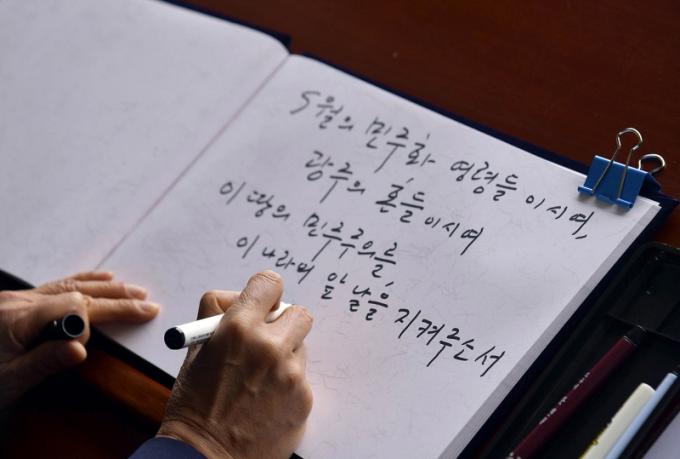 5월의 민주화 영령들이시여,
광주의 혼들이시여
이 땅의 민주주의을
이 나라의 앞날을 지켜주소서